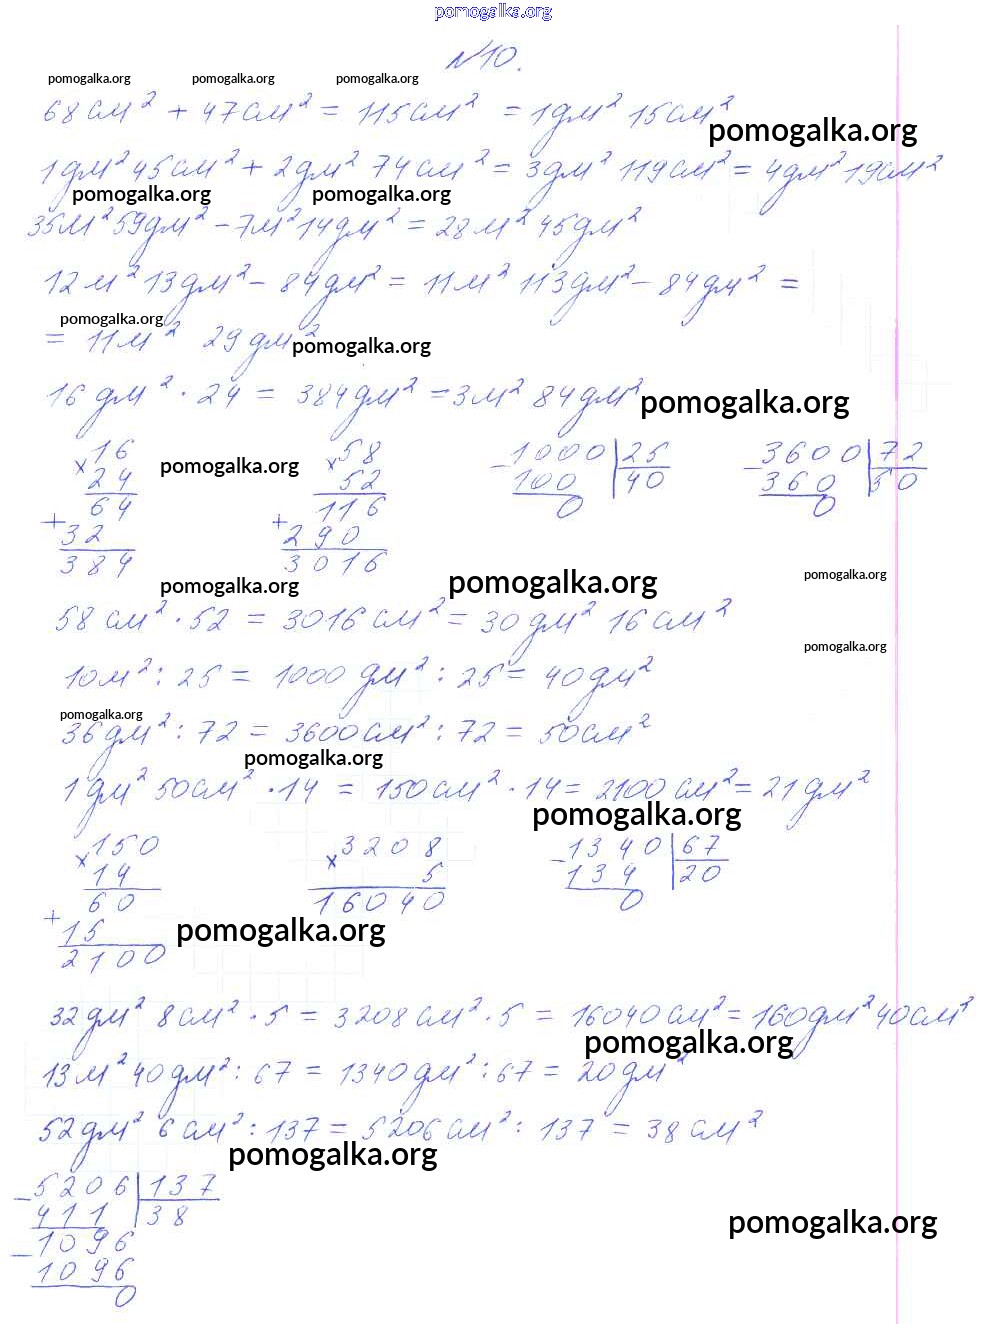 pomogalka.org
№10.
pomogalka.org pomogalka.org pomogalka.org
68см² + 47см² = 115см² = 1дм² 15см²
pomogalka.org
1дм² 45см² + 2дм² 74см² = 3дм² 119см² = 4дм² 19см²
pomogalka.org pomogalka.org
35м² 59дм² - 7м² 14дм² = 28м² 45дм²
12м² 13дм² - 84дм² = 11м² 113дм² - 84дм² =
pomogalka.org
= 11м² 29дм²
pomogalka.org
16дм² · 24 = 384дм² = 3м² 84дм²
pomogalka.org
×16 ×58 -1000|25 -3600|72
24 52 100 40 360 50
pomogalka.org
64 116 0 0
+32 +290
384 3016
pomogalka.org pomogalka.org pomogalka.org
58см² · 52 = 3016см² = 30дм² 16см²
pomogalka.org
10м² : 25 = 1000дм² : 25 = 40дм²
pomogalka.org
36дм² : 72 = 3600см² : 72 = 50см²
pomogalka.org
1дм² 50см² · 14 = 150см² · 14 = 2100см² = 21дм²
pomogalka.org
×150 ×3208 -1340|67
14 5 134 20
60 16040 0
+15
pomogalka.org
2100
32дм² 8см² · 5 = 3208см² · 5 = 16040см² = 160дм² 40см²
pomogalka.org
13м² 40дм² : 67 = 1340дм² : 67 = 20дм²
52дм² 6см² : 137 = 5206см² : 137 = 38см²
pomogalka.org
-5206|137
411 38
pomogalka.org
-1096
1096
0